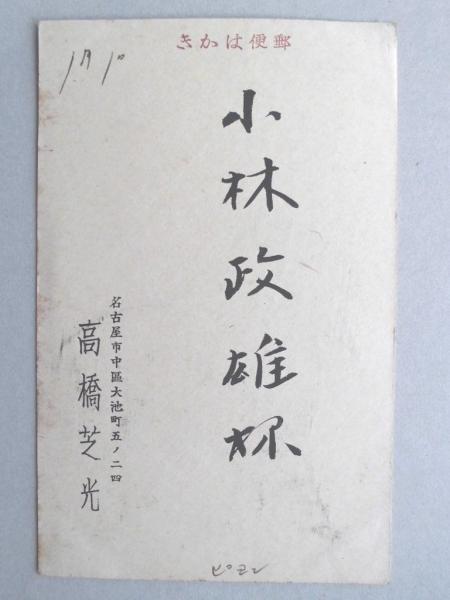 郵便はかき
小林政雄様
名古屋市中區大池町五ノ二四
高橋芝光
ピヨン